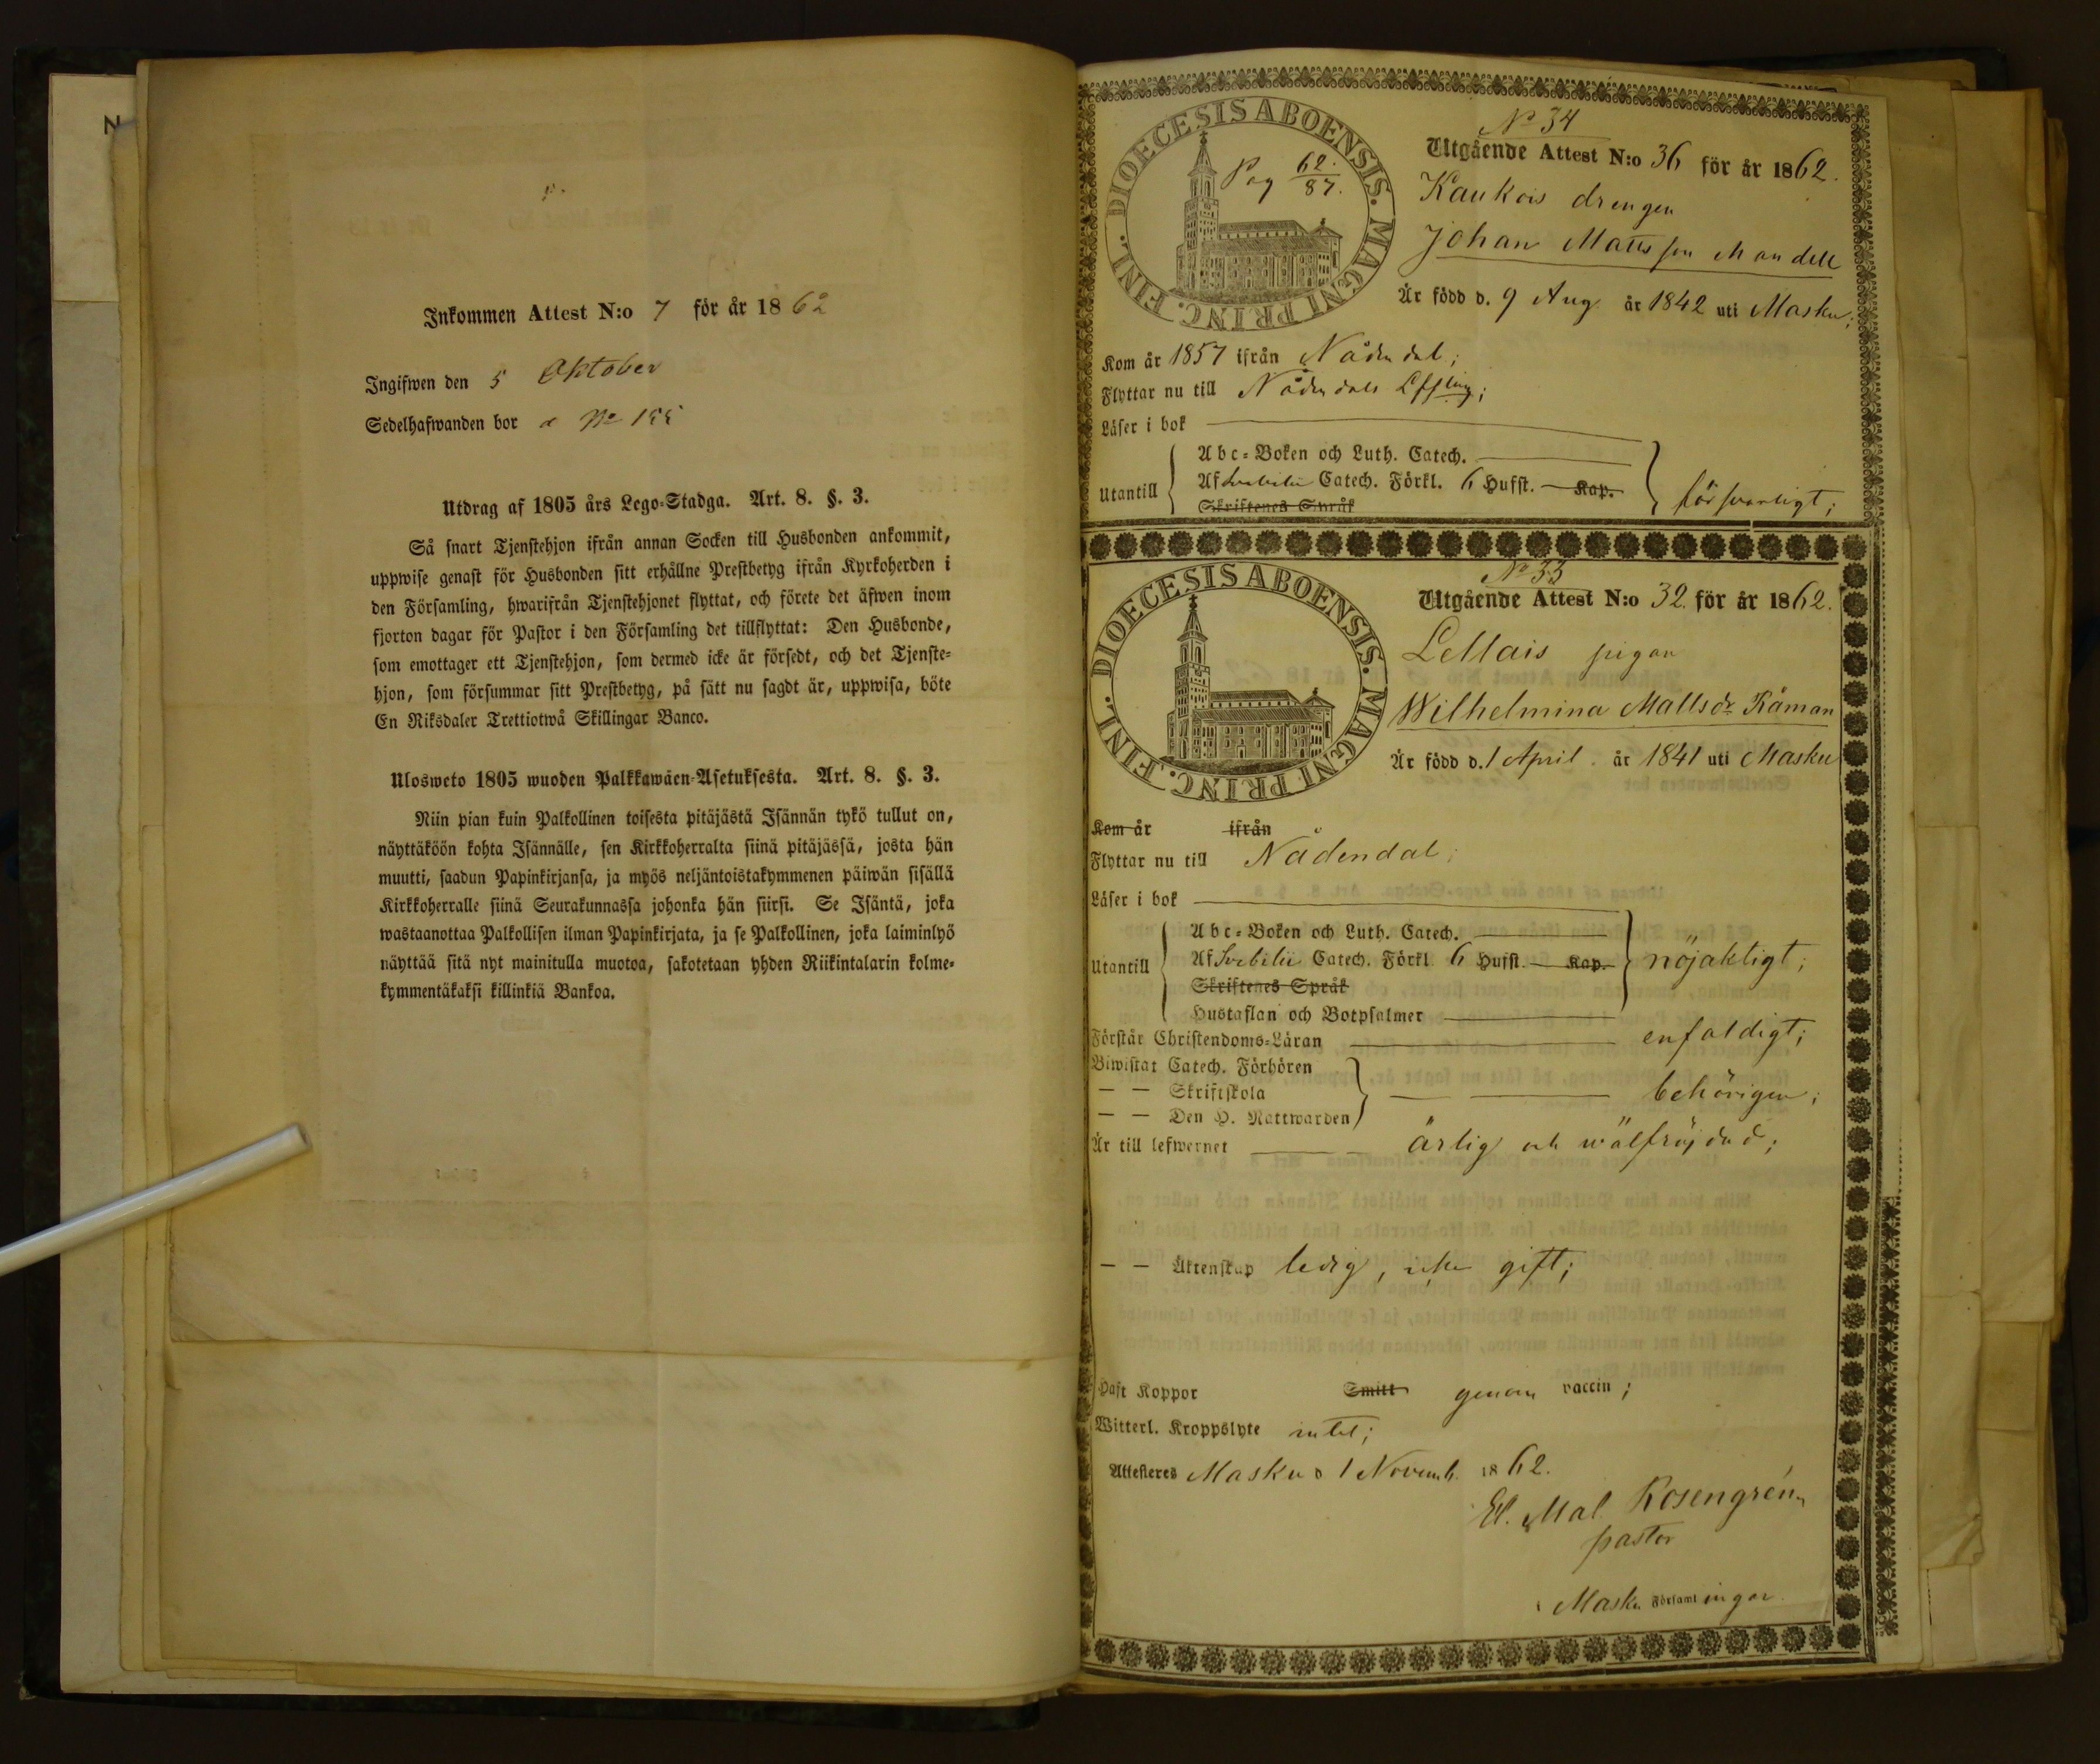 Inkommen Attest N:o 7 för år 1862
Ingifwen den 5 Oktober
Sedelhafwanden bor a No 155
Utdrag af 1805 års Lego-Stadga. Art. 8. §. 3.
Så snart Tjenstehjon ifrån annan Socken till Husbonden ankommit,
uppwise genast för Husbonden sitt erhållne Prestbetyg ifrån Kyrkoherden i
den Församling, hwarifrån Tjenstehjonet flyttat, och förete det äfwen inom
fjorton dagar för Pastor i den Församling det tillflyttat: Den Husbonde,
som emottager ett Tjenstehjon, som dermed icke är försedt, och det Tjenste-
hjon, som försummar sitt Prestbetyg, på sätt nu sagdt är, uppwisa, böte
En Riksdaler Trettiotwå Skillingar Banco.
Ulosweto 1805 wuoden Palkkawäen-Asetuksesta. Art. 8. §. 3.
Niin pian kuin Palkollinen toisesta pitäjästä Isännän tykö tullut on,
näyttäköön kohta Isännälle, sen Kirkkoherralta siinä pitäjässä, josta hän
muutti, saadun Papinkirjansa, ja myös neljäntoistakymmenen päiwän sisällä
Kirkkoherralle siinä Seurakunnassa johonka hän siirsi. Se Isäntä, joka
wastaanottaa Palkollisen ilman Papinkirjata, ja se Palkollinen, joka laiminlyö
näyttää sitä nyt mainitulla muotoa, sakotetaan yhden Riikintalarin kolme-
kymmentäkaksi killinkiä Bankoa.
DIOECESIS ABOENSIS. MAGNI PRINC. FINL.
Pag 62/87.
No 34
Utgående Attest N:o 36 för år 1862.
Kaukois drengen
Johan Mattsson Mandell
Är född d. 9 Aug år 1842 uti Masku;
Kom år 1857 ifrån Nådendal;
Flyttar nu till Nådendals
Läser i bok
Utantill
Abc-Boken och Luth. Catech.
Af Svebilii Catech. Förkl. 6 Hufst. Kap.
Skriftenes Språk
försvarligt;
DIOECESIS ABOENSIS. MAGNI PRINC. FINL.
No 33
Utgående Attest N:o 32. för år 1862.
Lellais pigan
Wilhelmina Mattsdr Kåman
Är född d. 1 April. år 1841 uti Masku
Kom år ifrån
Flyttar nu till Nådendal;
Läser i bok
Utantill
Abc-Boken och Luth. Catech.
Af Svebilii Catech. Förkl 6 Hufst. Kap.
Skriftenes Språk
Hustaflan och Botpsalmer
nöjaktigt;
Förstår Christendoms-Läran enfaldigt;
Biwistat Catech. Förhören
— — Skriftskola behörigen;
— — Den H. Nattwarden
Är till lefwernet ärlig och wälfräjdad;
— — Äktenskap ledig, icke gift;
Haft Koppor Smitt genom vaccin;
Witterl. Kroppslyte intet;
Attesteres Masku d 1 Novemb. 1862.
El. Mal. Rosengrén
pastor
i Masku Församlingar.